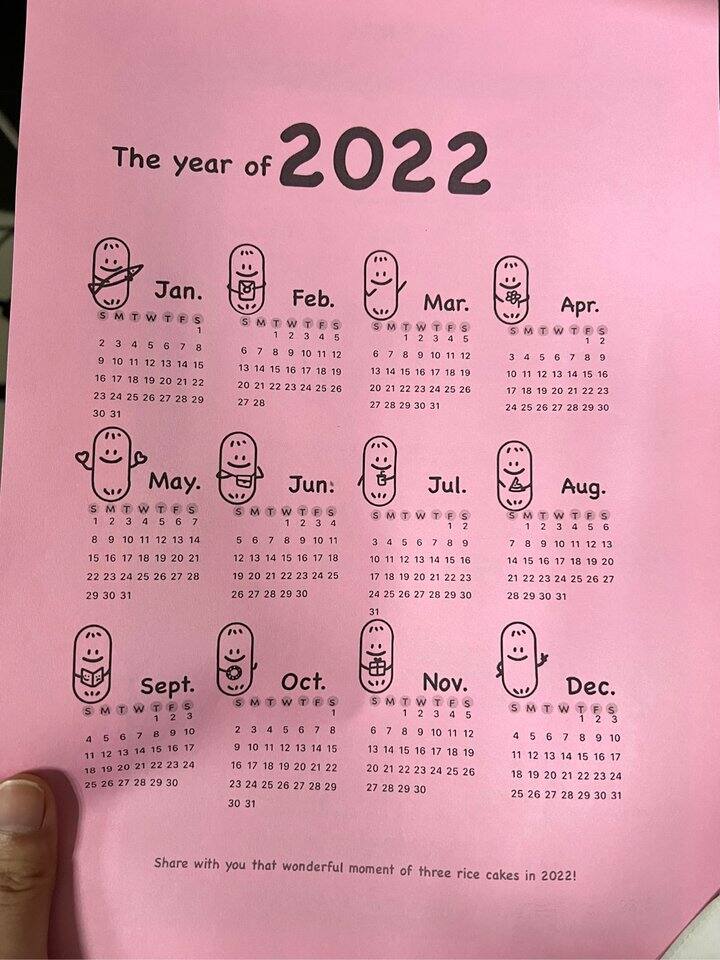 The year of 2022
Jan.
S M T W T F S
1
2 3 4 5 6 7 8
9 10 11 12 13 14 15
16 17 18 19 20 21 22
23 24 25 26 27 28 29
30 31
Feb.
S M T W T F S
1 2 3 4 5
6 7 8 9 10 11 12
13 14 15 16 17 18 19
20 21 22 23 24 25 26
27 28
Mar.
S M T W T F S
1 2 3 4 5
6 7 8 9 10 11 12
13 14 15 16 17 18 19
20 21 22 23 24 25 26
27 28 29 30 31
Apr.
S M T W T F S
1 2
3 4 5 6 7 8 9
10 11 12 13 14 15 16
17 18 19 20 21 22 23
24 25 26 27 28 29 30
May.
S M T W T F S
1 2 3 4 5 6 7
8 9 10 11 12 13 14
15 16 17 18 19 20 21
22 23 24 25 26 27 28
29 30 31
Jun.
S M T W T F S
1 2 3 4
5 6 7 8 9 10 11
12 13 14 15 16 17 18
19 20 21 22 23 24 25
26 27 28 29 30
Jul.
S M T W T F S
1 2
3 4 5 6 7 8 9
10 11 12 13 14 15 16
17 18 19 20 21 22 23
24 25 26 27 28 29 30
31
Aug.
S M T W T F S
1 2 3 4 5 6
7 8 9 10 11 12 13
14 15 16 17 18 19 20
21 22 23 24 25 26 27
28 29 30 31
Sept.
S M T W T F S
1 2 3
4 5 6 7 8 9 10
11 12 13 14 15 16 17
18 19 20 21 22 23 24
25 26 27 28 29 30
Oct.
S M T W T F S
1
2 3 4 5 6 7 8
9 10 11 12 13 14 15
16 17 18 19 20 21 22
23 24 25 26 27 28 29
30 31
Nov.
S M T W T F S
1 2 3 4 5
6 7 8 9 10 11 12
13 14 15 16 17 18 19
20 21 22 23 24 25 26
27 28 29 30
Dec.
S M T W T F S
1 2 3
4 5 6 7 8 9 10
11 12 13 14 15 16 17
18 19 20 21 22 23 24
25 26 27 28 29 30 31
Share with you that wonderful moment of three rice cakes in 2022!